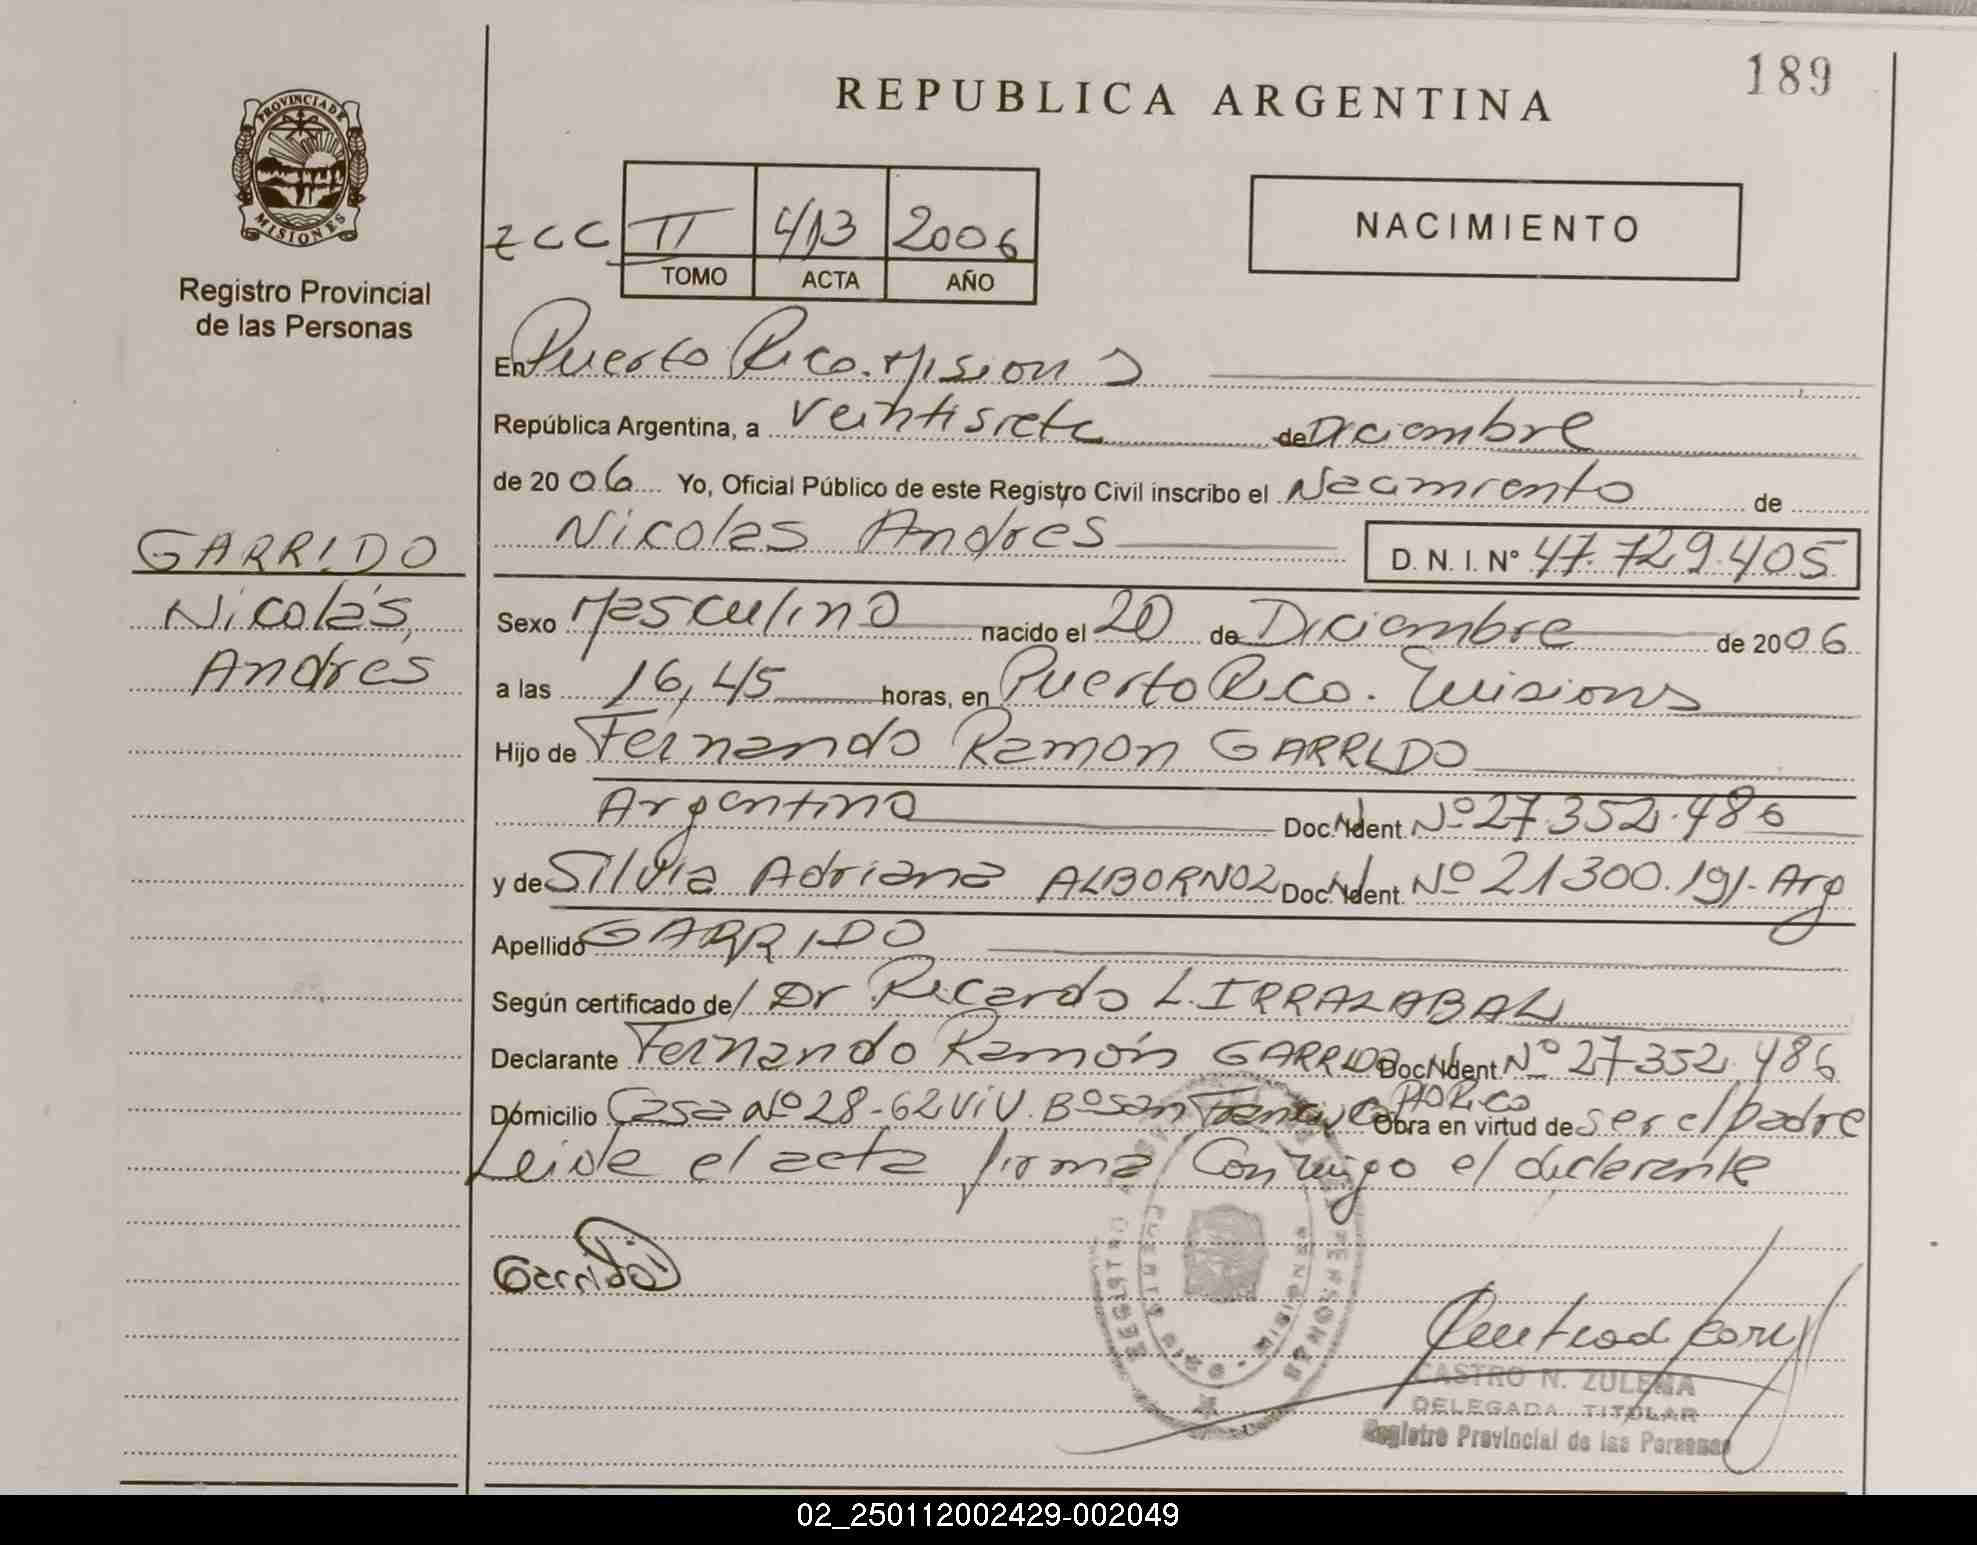 189
REPUBLICA ARGENTINA
PROVINCIA DE
MISIONES
Registro Provincial
de las Personas
NACIMIENTO
ZCC II 413 2006
TOMO ACTA AÑO
En Puerto Rico. Misiones
República Argentina, a veintisiete de Diciembre
de 2006 Yo, Oficial Público de este Registro Civil inscribo el Nacimiento de
Nicolas Andres D. N. I. Nº 47.729.405
GARRIDO
Nicolás,
Andres
Sexo Masculino nacido el 20 de Diciembre de 2006
a las 16,45 horas, en Puerto Rico. Misiones
Hijo de Fernando Ramon GARRIDO
Argentino Doc. Ident. Nº 27.352.486
y de Silvia Adriana ALBORNOZ Doc. Ident. Nº 21300.191- Arg
Apellido GARRIDO
Según certificado de/ Dr Ricardo L. IRRALABAL
Declarante Fernando Ramón GARRIDO Doc. Ident Nº 27352.486
Domicilio Casa Nº 28-62 Viv. Bº San Francisco Pto Rico Obra en virtud de ser el padre
Leida el acta firma Conmigo el declarante
Garrido
REGISTRO PERSONAS
PUERTO RICO
CASTRO N. ZULEMA
DELEGADA TITULAR
Registro Provincial de las Personas
02_250112002429-002049